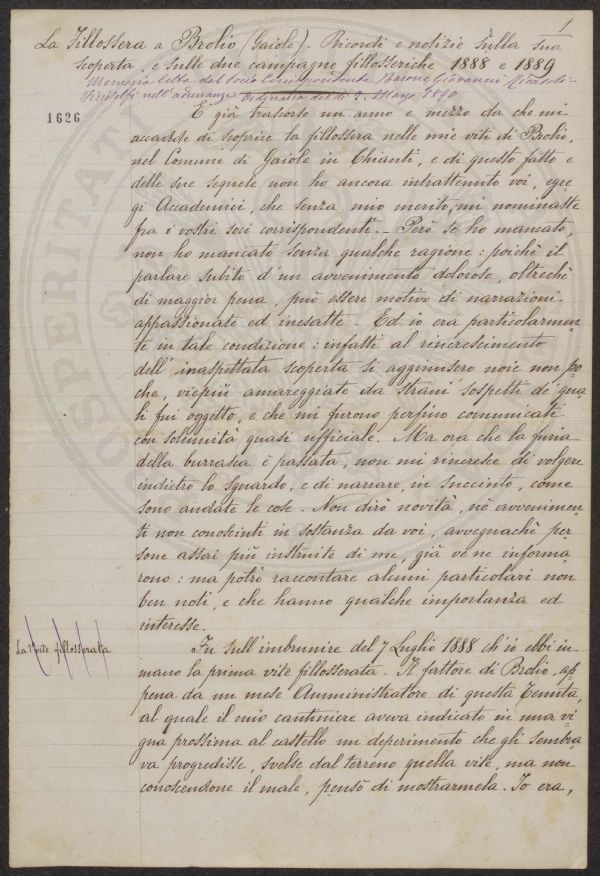 1
La Fillossera a Brolio (Gaiole) - Ricordi e notizie sulla sua
scoperta, e sulle due campagne fillosseriche 1888 e 1889
Memoria letta dal Socio Corrispondente Barone Giovanni Ricasoli-
Firidolfi nell'adunanza Ordinaria del dì 2. Marzo 1890
1626
È già trascorso un anno e mezzo da che mi
accadde di scoprire la fillossera nelle mie viti di Brolio,
nel Comune di Gaiole in Chianti, e di questo fatto e
delle sue seguele non ho ancora intrattenuto voi, egre
gi Accademici, che senza mio merito, mi nominaste
fra i vostri soci corrispondenti. - Però se ho mancato,
non ho mancato senza qualche ragione: poichè il
parlare subito d'un avvenimento doloroso, oltrechè
di maggior pena, può essere motivo di narrazioni
appassionate ed inesatte. Ed io era particolarmen
te in tale condizione: infatti al rincrescimento
dell'inaspettata scoperta si aggiunsero noie non po
che, viepiù amareggiate da strani sospetti de' qua
li fui oggetto, e che mi furono perfino comunicati
con solennità quasi ufficiale. Ma ora che la furia
della burrasca è passata, non mi rincresce di volgere
indietro lo sguardo, e di narrare, in succinto, come
sono andate le cose. Non dirò novità, nè avvenimen
ti non conosciuti in sostanza da voi, avvegnachè per
sone assai più instruite di me, già ve ne informa
rono: ma potrò raccontare alcuni particolari non
ben noti, e che hanno qualche importanza ed
interesse.
La 1ª vite fillosserata
Fu sull'imbrunire del 7 Luglio 1888 ch'io ebbi in
mano la prima vite fillosserata. Il fattore di Brolio, ap
pena da un mese Amministratore di questa Tenuta,
al quale il mio cantiniere aveva indicato in una vi
gna prossima al castello un deperimento che gli sembra
va progredisse, svelse dal terreno quella vite, ma non
conoscendone il male, pensò di mostrarmela. Io era,